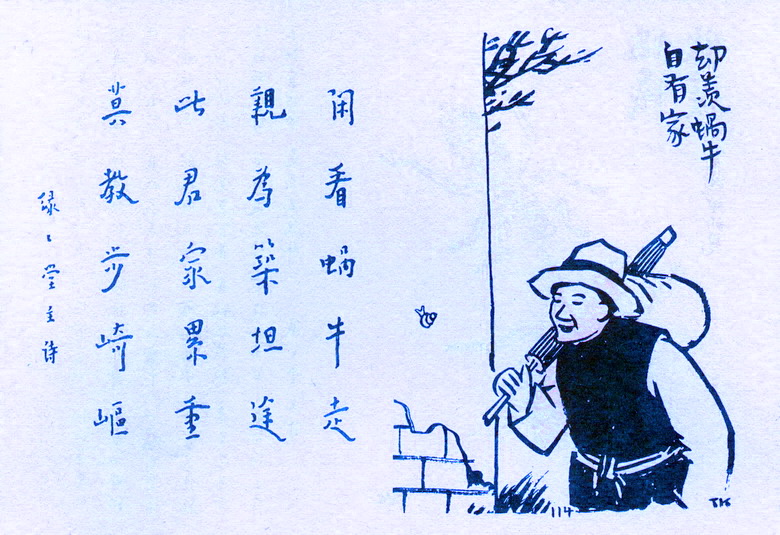 却羡蝸牛
自有家
閑看蝸牛走
親為築坦途
此君家累重
莫教步崎嶇
缘々堂主诗
114
TK